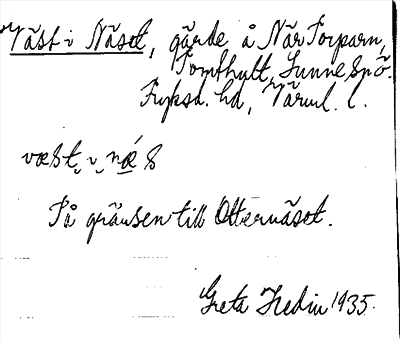 Väst i Näset, gärde å När Torparn,
Tomthult, Sunne sn ö.
Fryksd. hd, Värml. l.
væst ̮ i ̮ næ´s
På gränsen till Otternäset.
Greta Hedin 1935.